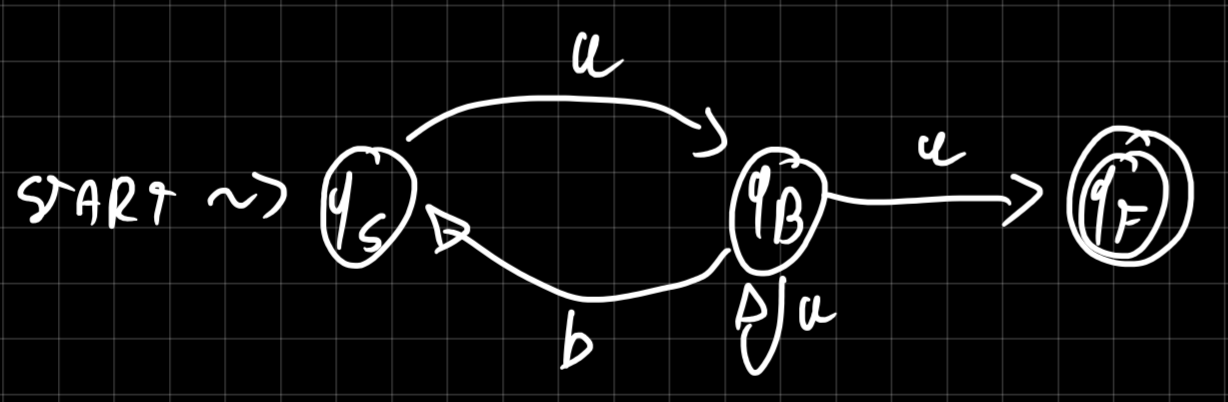 a
START ~> q_S q_B a q_F
b a